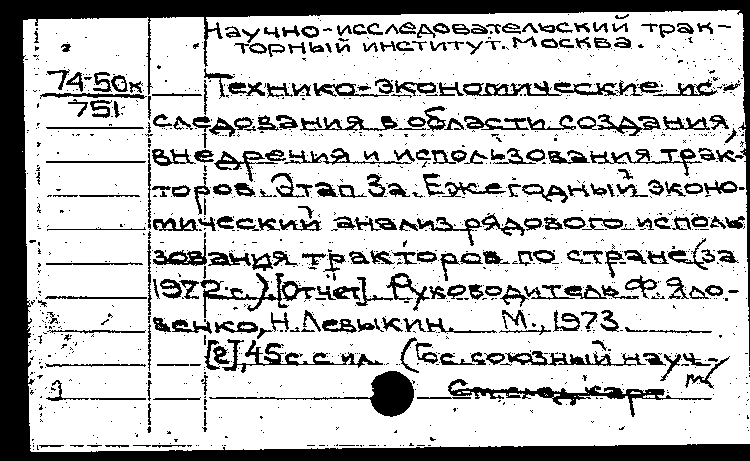 Научно-исследовательский трак-
торный институт. Москва.
74-50к
751
Технико-экономические ис-
следования в области создания,
внедрения и использования трак-
торов. Этап 3а. Ежегодный эконо-
мический анализ рядового исполь-
зования тракторов по стране (за
1972 г.). [Отчет]. Руководитель Ф. Яло-
венко, Н. Левыкин. М., 1973.
[2], 45 с. с ил. (Гос. союзный науч.-
См. след. карт.